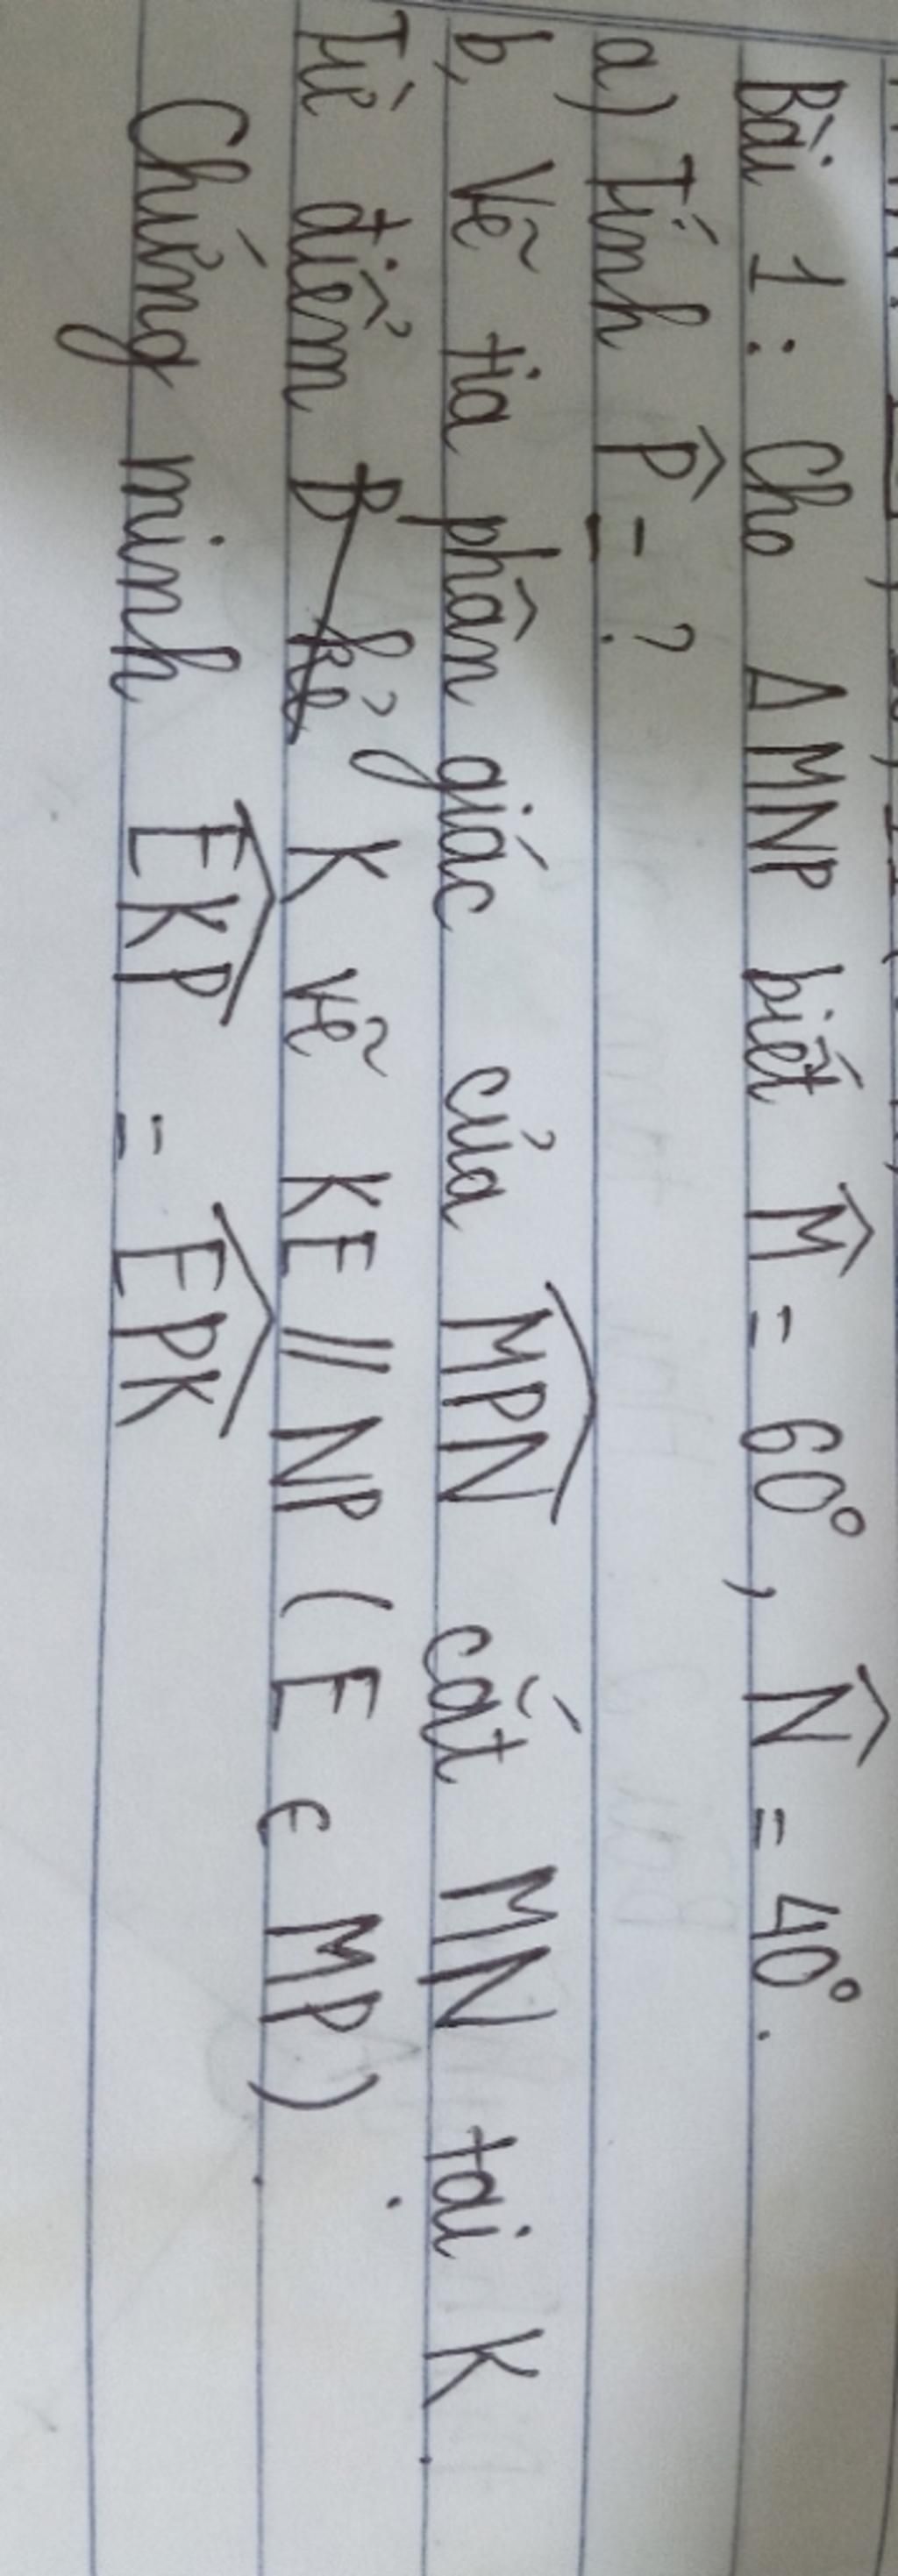 Bài 1 : Cho Δ MNP biết M̂ = 60°, N̂ = 40°.
a) Tính P̂ = ?
b, Vẽ tia phân giác của \widehat{MPN} cắt MN tại K.
Từ điểm K vẽ KE // NP ( E ∈ MP ).
Chứng minh \widehat{EKP} = \widehat{EPK}